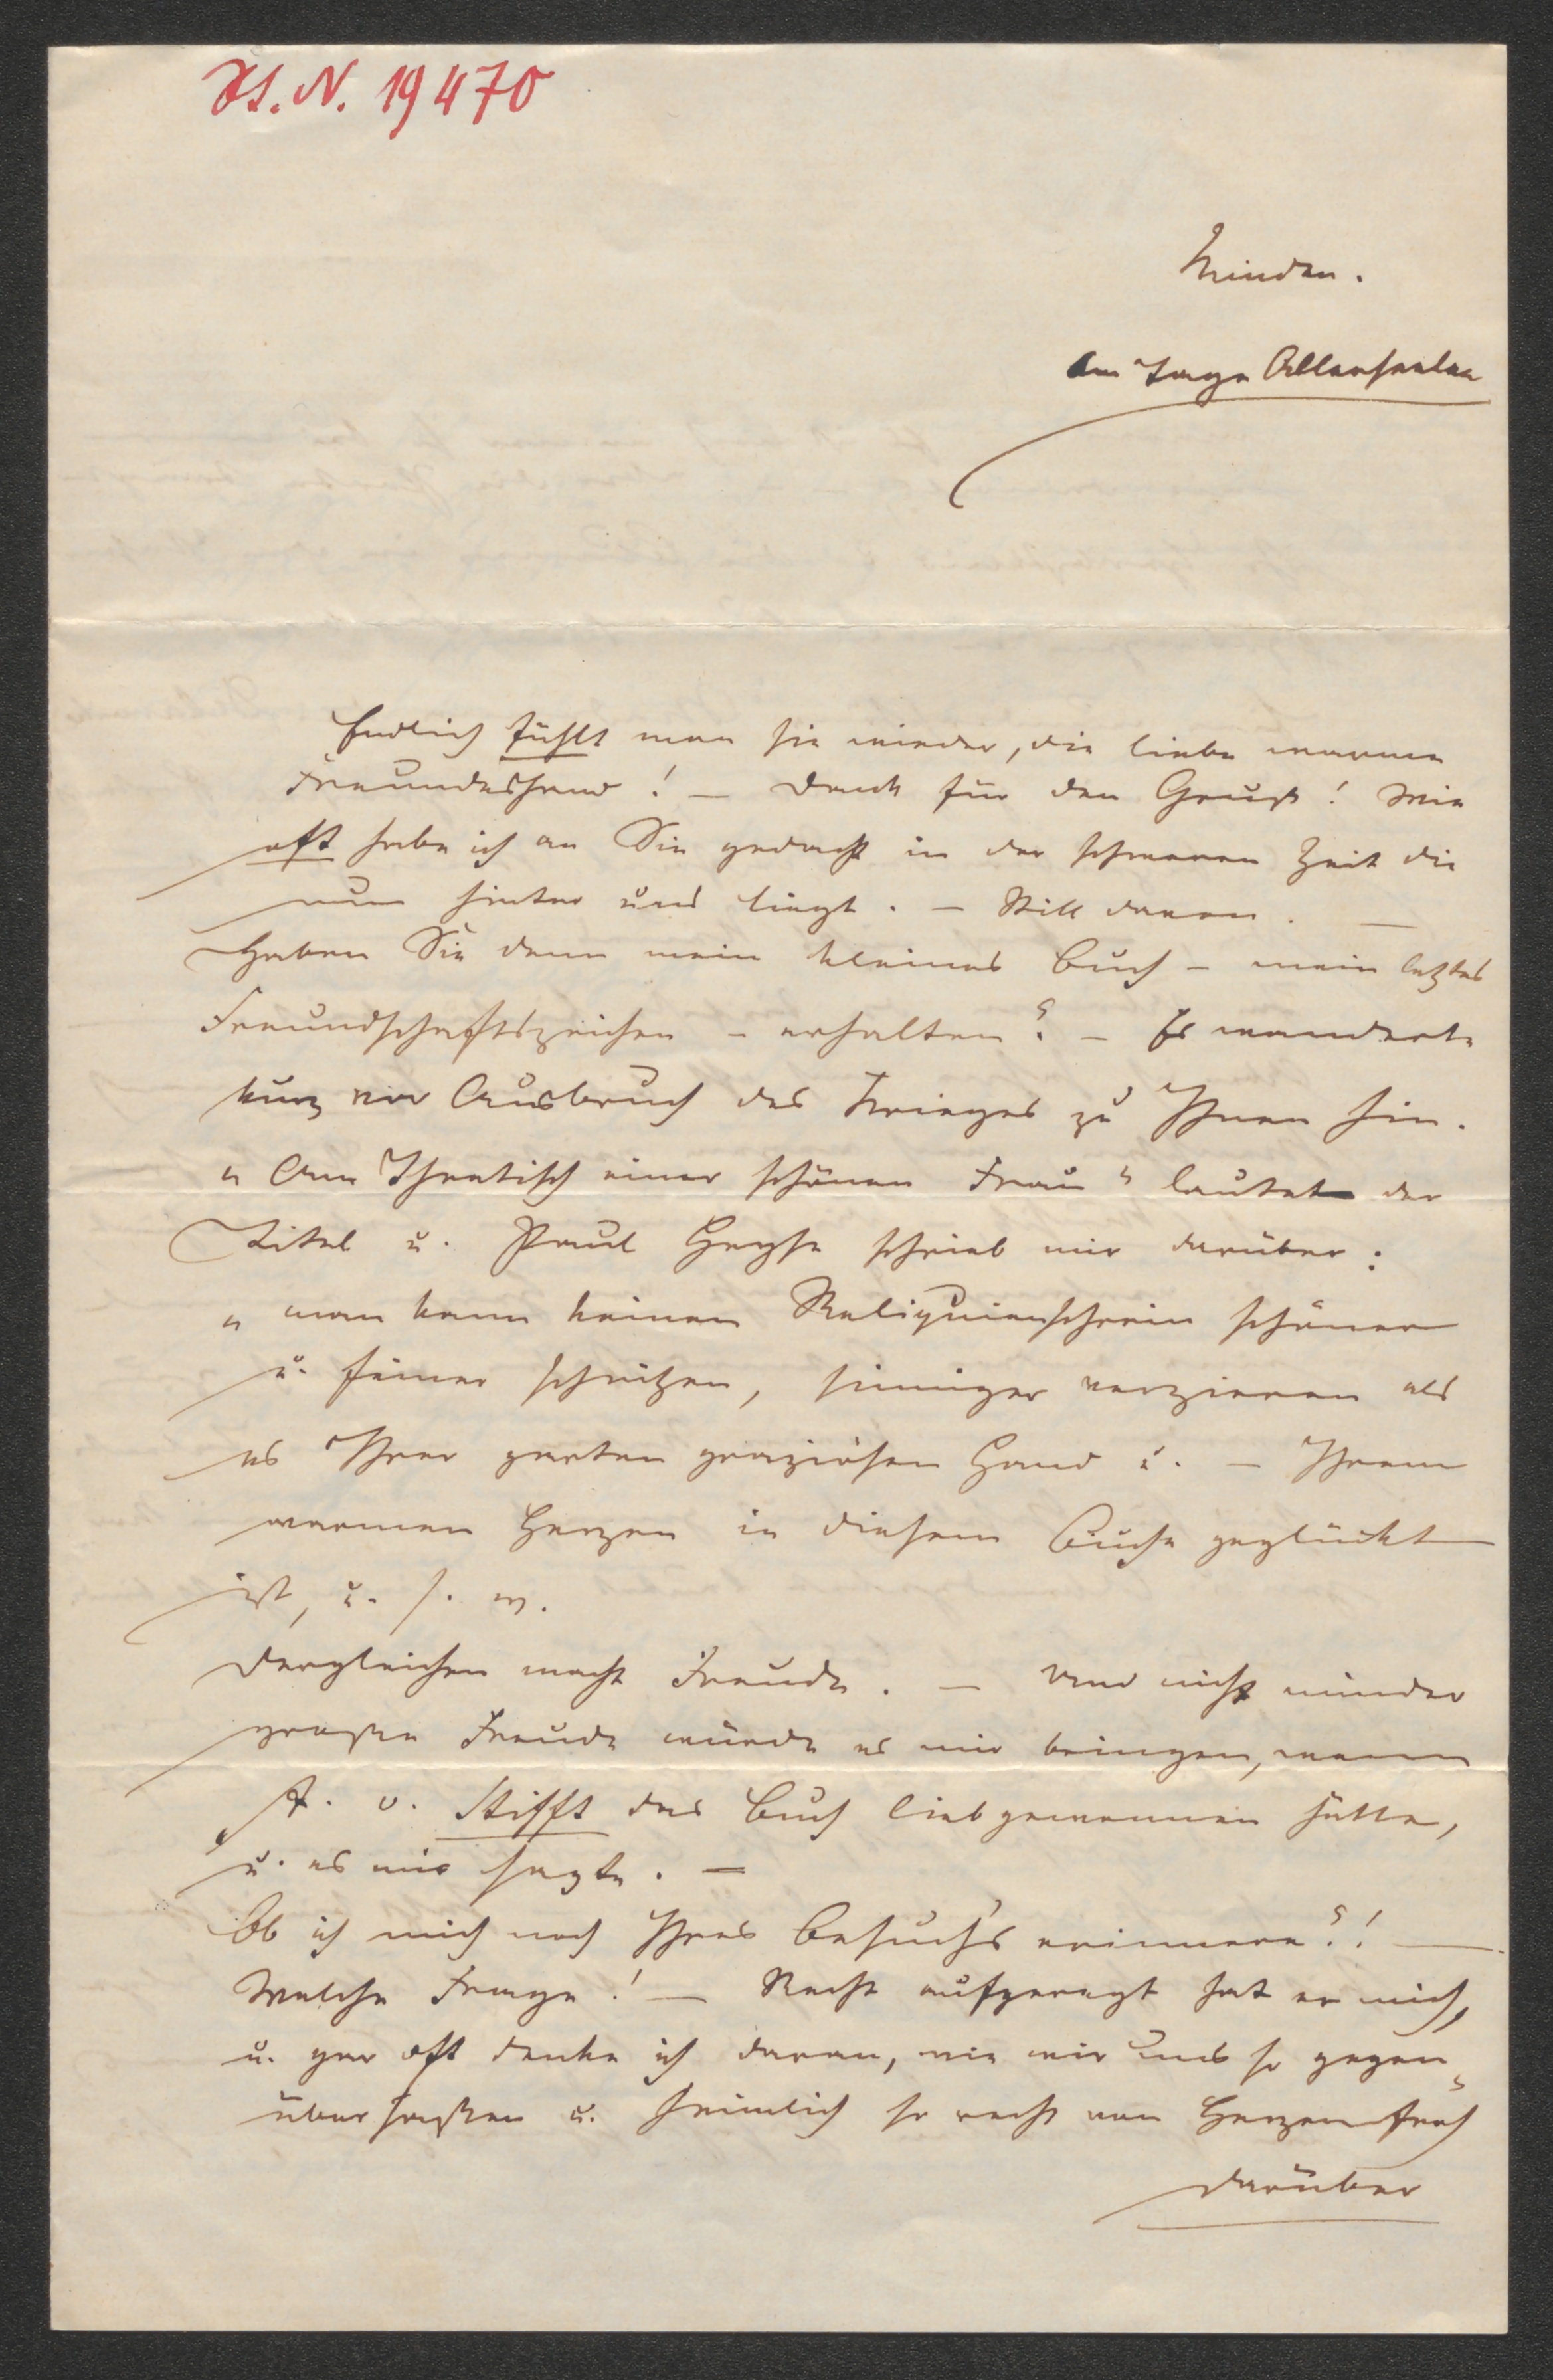 H. I. N. 19470
Minden.
Am Tage Allerseelen
Endlich fühlt man sie wieder, die liebe warme
Freundeshand! — Dank für den Gruß! Wie
oft habe ich an Sie gedacht in der schweren Zeit die
nun hinter uns liegt. — Still davon. —
Haben Sie denn mein kleines Buch – mein letztes
Freundschaftszeichen – erhalten? – Es wanderte
kurz vor Ausbruch des Krieges zu Ihnen hin.
„Am Theetisch einer schönen Frau" lautet der
Titel u. Paul Heyse schrieb mir darüber:
„man kann keinen Reliquienschrein schöner
u. feiner schnitzen, sinniger verzieren als
es Ihrer zarten graziösen Hand u. – Ihrem
warmen Herzen in diesem Buche geglückt
ist, u. s. w.
Dergleichen macht Freude. — Und nicht minder
große Freude würde es mir bringen, wenn
A. v. Stifft das Buch liebgewonnen hätte,
u. es mir sagte. —
Ob ich mich noch Ihres Besuch's erinnere?! —
Welche Frage! — Recht aufgeregt hat er mich,
u. gar oft denke ich daran, wie wir uns so gegen„
über saßen u. heimlich so recht von Herzen froh
darüber